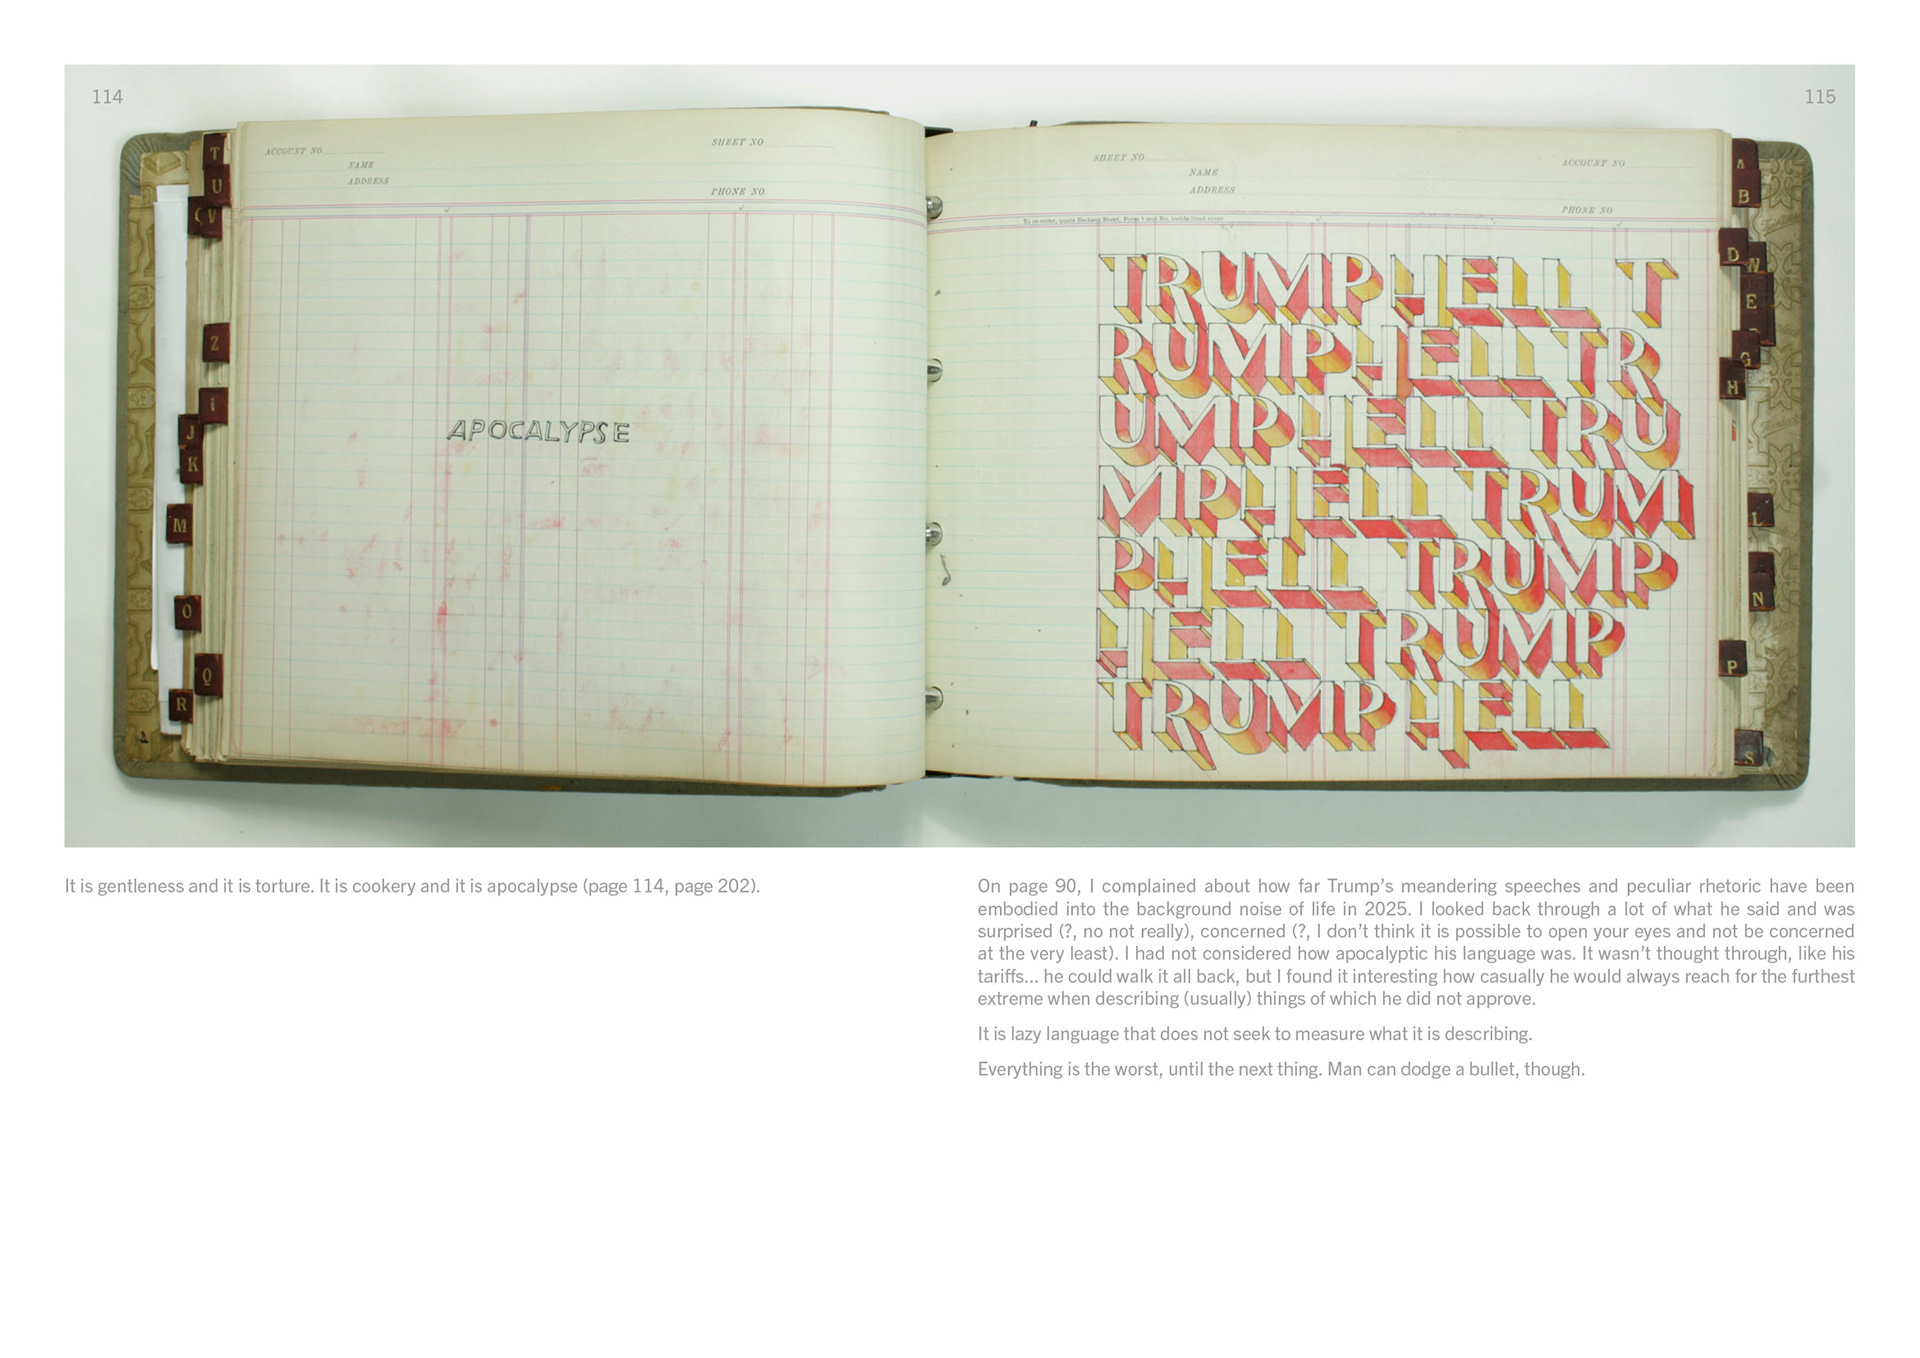 114
115
T
U
V
Z
I
J
K
M
O
Q
R
ACCOUNT NO
SHEET NO
NAME
ADDRESS
PHONE NO.
APOCALYPSE
SHEET NO
ACCOUNT NO
NAME
ADDRESS
PHONE NO
TRUMP HELL T
RUMP HELL TR
UMP HELL TRU
MP HELL TRUM
P HELL TRUMP
HELL TRUMP
TRUMP HELL
A
B
D
E
G
H
L
N
P
S
It is gentleness and it is torture. It is cookery and it is apocalypse (page 114, page 202).
On page 90, I complained about how far Trump’s meandering speeches and peculiar rhetoric have been
embodied into the background noise of life in 2025. I looked back through a lot of what he said and was
surprised (?, no not really), concerned (?, I don’t think it is possible to open your eyes and not be concerned
at the very least). I had not considered how apocalyptic his language was. It wasn’t thought through, like his
tariffs... he could walk it all back, but I found it interesting how casually he would always reach for the furthest
extreme when describing (usually) things of which he did not approve.
It is lazy language that does not seek to measure what it is describing.
Everything is the worst, until the next thing. Man can dodge a bullet, though.